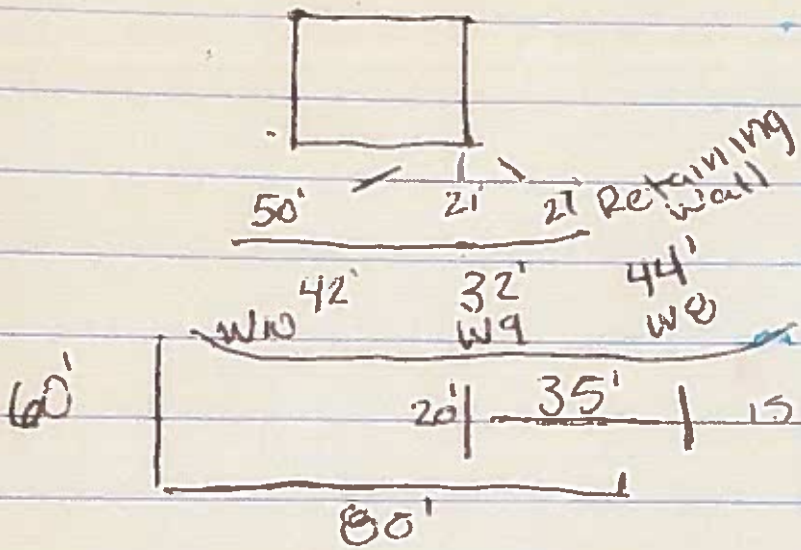 50' 21' 21 Retaining Wall
42' 32' 44'
W10 W9 W8
60' 20' 35' 15
80'